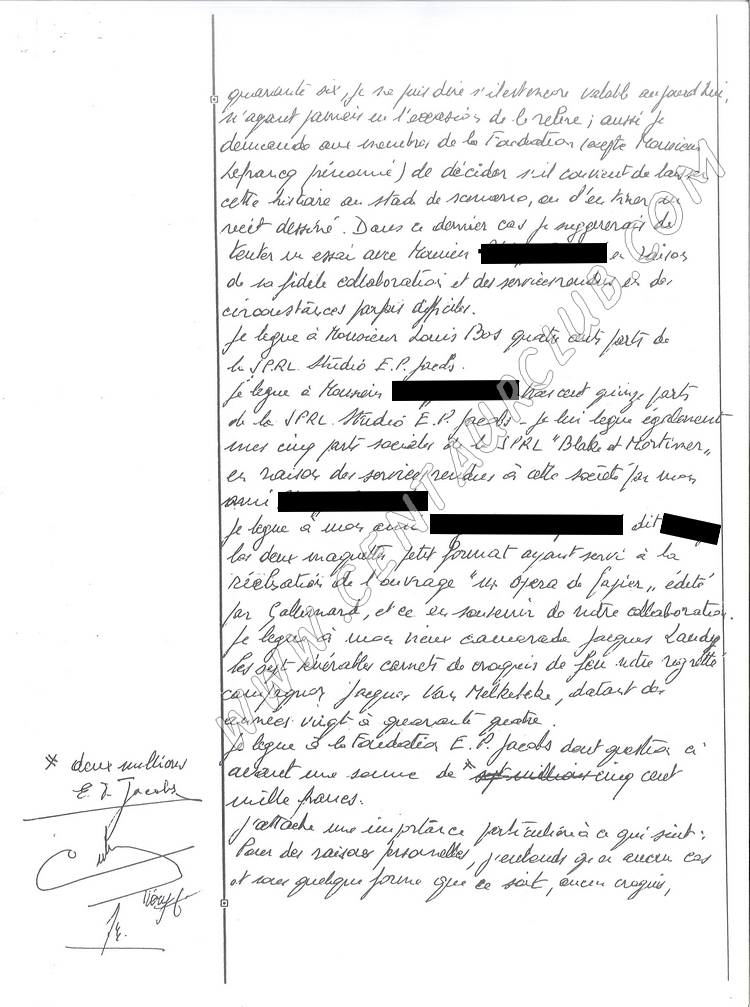 quarante six, je ne puis dire s'il est encore valable aujourd'hui,
n'ayant jamais eu l'occasion de le relire ; aussi je
demande aux membres de la Fondation (excepté Monsieur
Lefrancq prénommé) de décider s'il convient de laisser
cette histoire au stade de scénario, ou d'en tirer un
récit dessiné. Dans ce dernier cas je suggererais de
tenter un essai avec Monsieur en raison
de sa fidèle collaboration et des services rendus en des
circonstances parfois difficiles.
Je legue à Monsieur Louis Bos quatre cents parts de
la SPRL. Studio E.P. Jacobs.
Je legue à Monsieur trois cent quinze parts
de la SPRL. Studio E.P. Jacobs - je lui legue également
mes cinq parts sociales de la SPRL "Blake et Mortimer"
en raison des services rendus à cette société par mon
ami
Je legue à mon ami dit
les deux maquettes petit format ayant servi à la
réalisation de l'ouvrage "un opera de papier" édité
par Gallimard, et ce en souvenir de notre collaboration.
Je legue à mon vieux camarade Jacques Laudy
les sept vénérables carnets de croquis de feu notre regretté
compagnon Jacques Van Melkebeke, datant des
années vingt à quarante quatre.
Je legue à la Fondation E.P. Jacobs dont question ci
avant une somme de * sept millions cinq cent
mille francs.
J'attache une importance particulière à ce qui suit :
Pour des raisons personnelles, j'entends qu'en aucun cas
et sous quelque forme que ce soit, aucun croquis,
* deux millions
E. P. Jacobs
WWW.CENTAURCLUB.COM